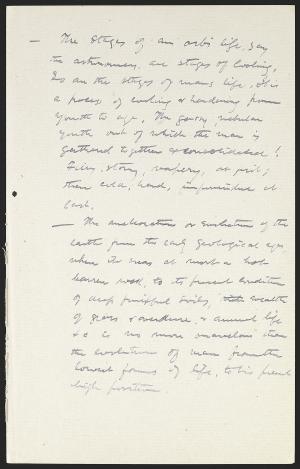 — The stages of an orb's life, say
the astronomers, are stages of cooling,
So are the stages of man's life. It is
a process of cooling & hardening from
youth to age. The gaseous, nebular
youth out of which the man is
gathered together & consolidated!
Fiery, stormy, vapory, at first;
then cold, hard, at
last.
— The amelioration or Evolution of the
earth from the early geological ages
when it was at most a hot
barren rock, to its present condition
of deep fruitful soils, wealth
of grass & verdure & animal life
&c is no more marvelous than
the evolution of man from the
lowest forms of life, to his present
high position.